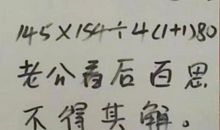 145×154÷4(1+1)80
老公看后百思
不得其解。